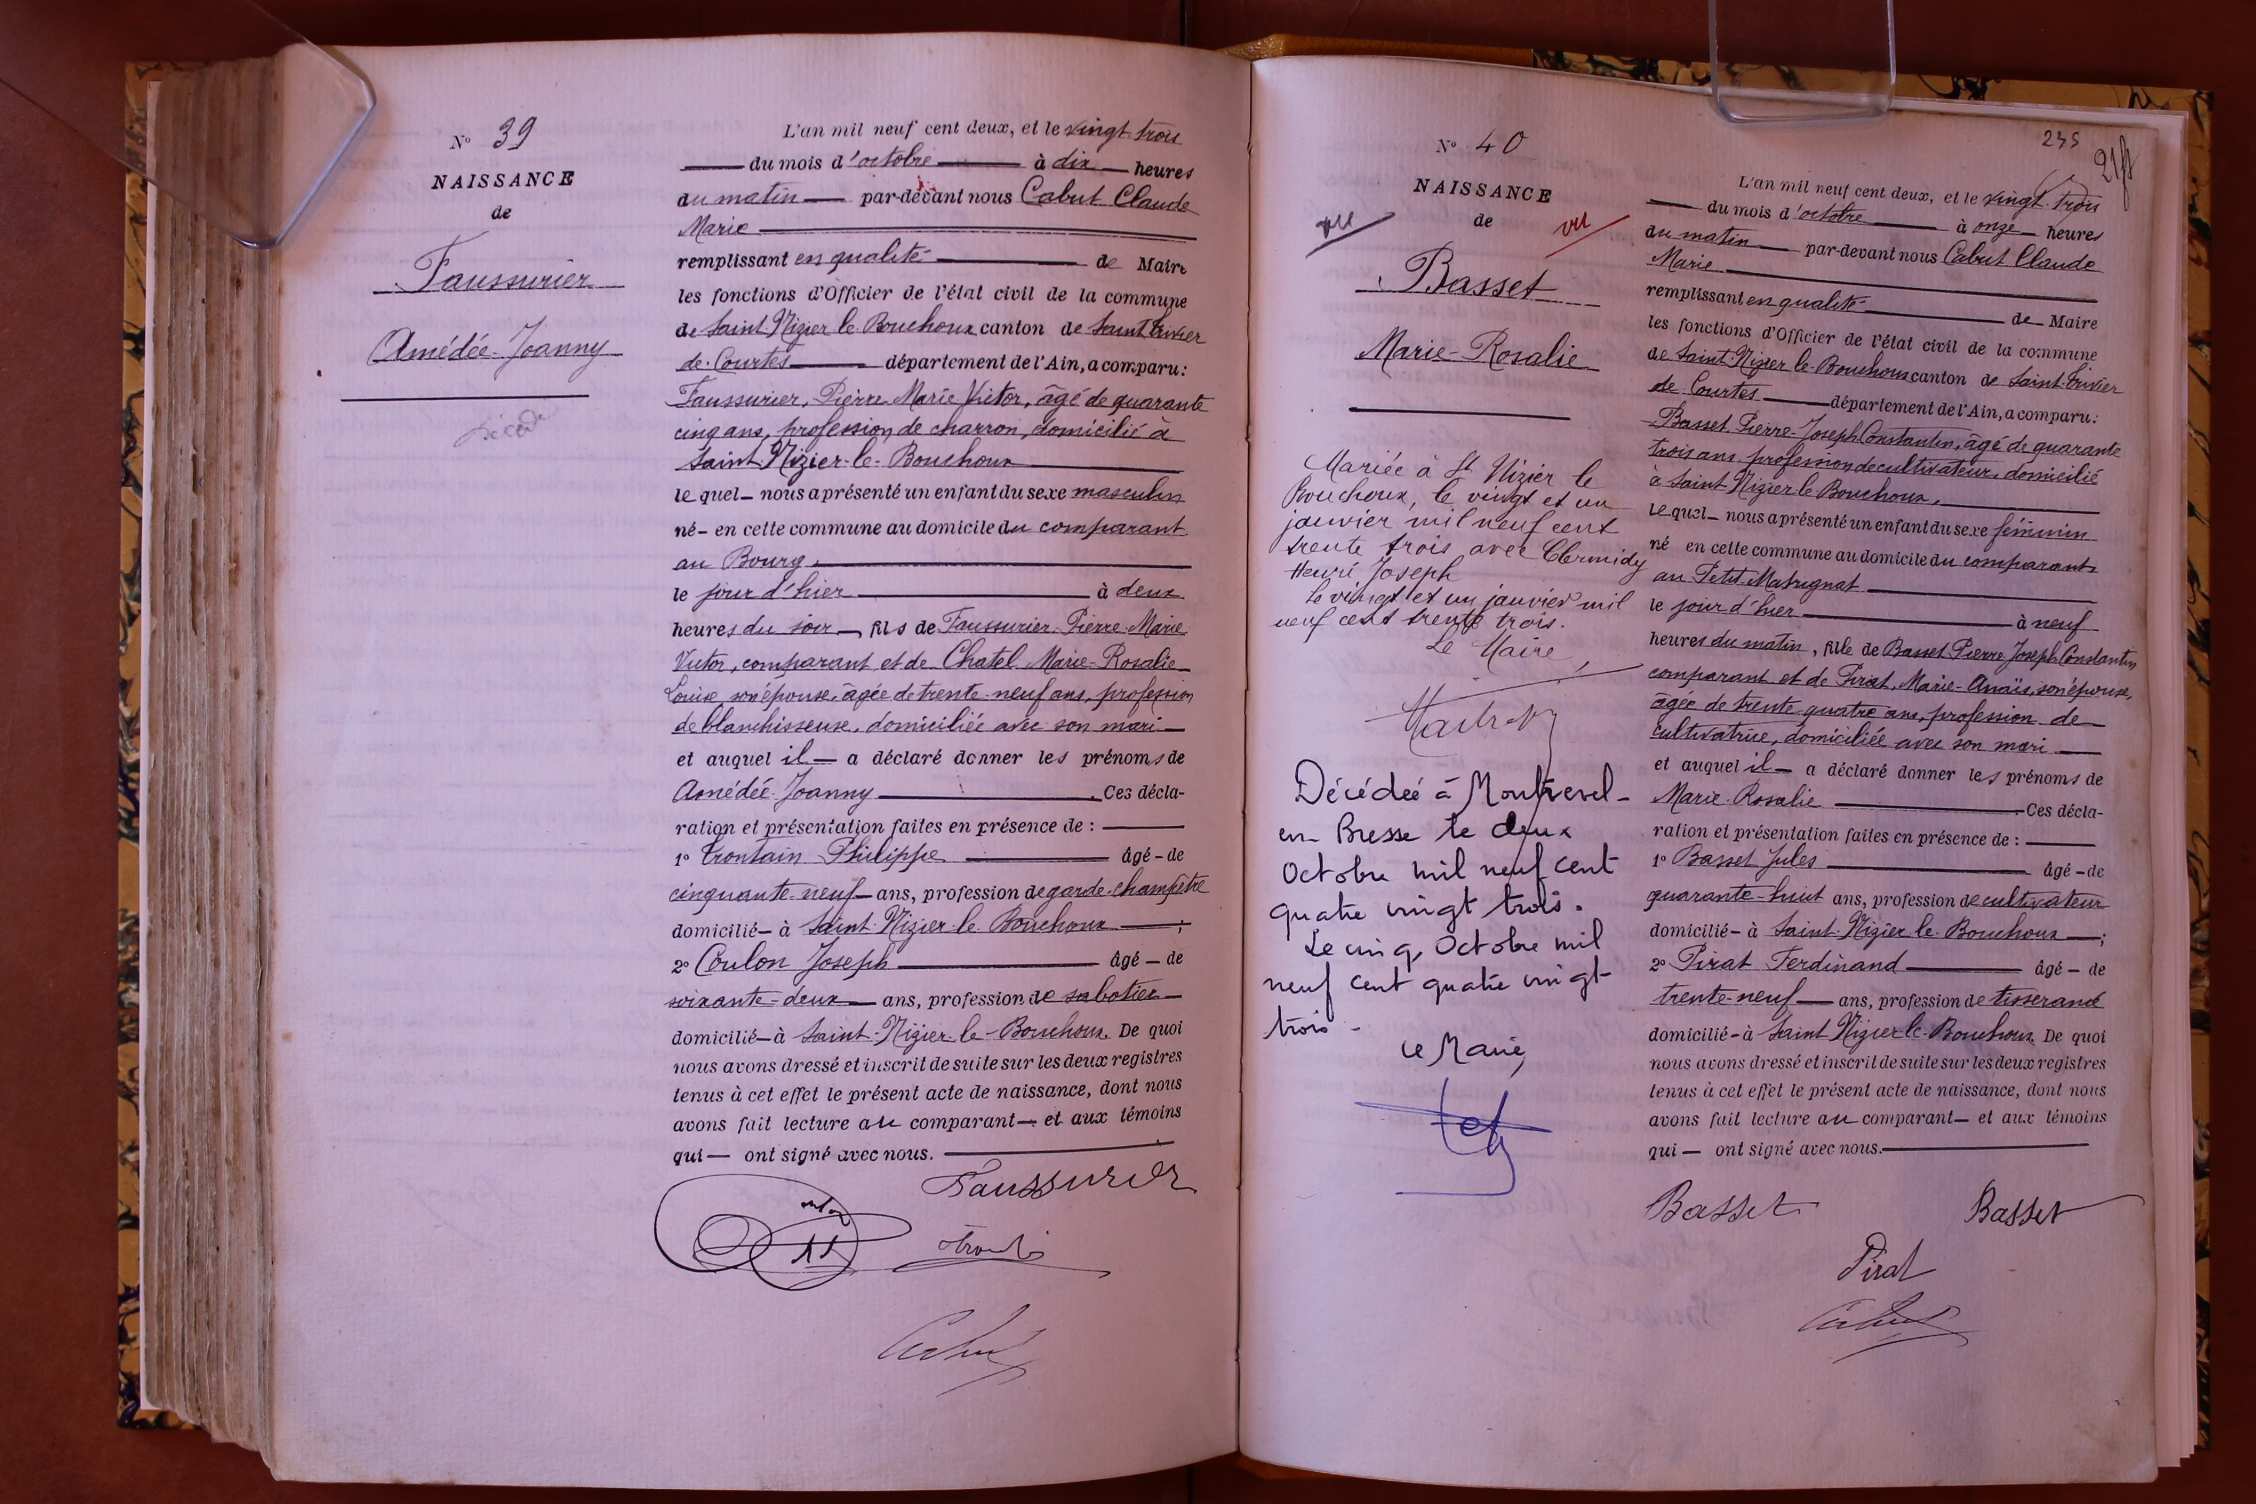 N° 39
NAISSANCE
de
Faussurier
Amédée-Joanny
Décédé
L'an mil neuf cent deux, et le vingt-trois
du mois d'octobre à dix heures
du matin par-devant nous Cabut Claude
Marie
remplissant en qualité de Maire
les fonctions d'Officier de l'état civil de la commune
de Saint-Nizier-le-Bouchoux canton de Saint-Trivier
de-Courtes département de l'Ain, a comparu:
Faussurier, Pierre-Marie Victor, âgé de quarante
cinq ans, profession de charron, domicilié à
Saint-Nizier-le-Bouchoux
lequel nous a présenté un enfant du sexe masculin
né en cette commune au domicile du comparant
au Bourg,
le jour d'hier à deux
heures du soir, fils de Faussurier Pierre-Marie
Victor, comparant et de Chatel Marie-Rosalie
Louise son épouse, âgée de trente-neuf ans, profession
de blanchisseuse, domiciliée avec son mari
et auquel il a déclaré donner les prénoms de
Amédée-Joanny Ces décla-
ration et présentation faites en présence de :
1° Trontain Philippe âgé de
cinquante-neuf ans, profession de garde-champêtre
domicilié à Saint-Nizier-le-Bouchoux ;
2° Coulon Joseph âgé de
soixante-deux ans, profession de sabotier
domicilié à Saint-Nizier-le-Bouchoux. De quoi
nous avons dressé et inscrit de suite sur les deux registres
tenus à cet effet le présent acte de naissance, dont nous
avons fait lecture au comparant et aux témoins
qui ont signé avec nous.
Faussurier
Cabut
235
N° 40
NAISSANCE
de
vu
vu
Basset
Marie-Rosalie
Mariée à St Nizier le
Bouchoux, le vingt et un
janvier mil neuf cent
trente trois avec Clermidy
Henri Joseph
Le vingt et un janvier mil
neuf cent trente trois.
Le Maire,
Décédée à Montrevel-
en-Bresse le deux
Octobre mil neuf cent
quatre vingt trois.
Le cinq Octobre mil
neuf cent quatre vingt
trois.
Le Maire,
L'an mil neuf cent deux, et le vingt-trois
du mois d'octobre à onze heures
du matin par-devant nous Cabut Claude
Marie
remplissant en qualité de Maire
les fonctions d'Officier de l'état civil de la commune
de Saint-Nizier-le-Bouchoux canton de Saint-Trivier
de Courtes département de l'Ain, a comparu:
Basset Pierre-Joseph Constantin, âgé de quarante
trois ans, profession de cultivateur, domicilié
à Saint Nizier le Bouchoux,
lequel nous a présenté un enfant du sexe féminin
né en cette commune au domicile du comparant
au Petit-Matrignat
le jour d'hier à neuf
heures du matin, fille de Basset Pierre Joseph Constantin
comparant et de Pirat, Marie-Anaïs, son épouse,
âgée de trente-quatre ans, profession de
cultivatrice, domiciliée avec son mari
et auquel il a déclaré donner les prénoms de
Marie-Rosalie Ces décla-
ration et présentation faites en présence de :
1° Basset Jules âgé de
quarante-huit ans, profession de cultivateur
domicilié à Saint-Nizier-le-Bouchoux ;
2° Pirat Ferdinand âgé de
trente-neuf ans, profession de tisserand
domicilié à Saint Nizier le-Bouchoux. De quoi
nous avons dressé et inscrit de suite sur les deux registres
tenus à cet effet le présent acte de naissance, dont nous
avons fait lecture au comparant et aux témoins
qui ont signé avec nous.
Basset Basset
Pirat
Cabut